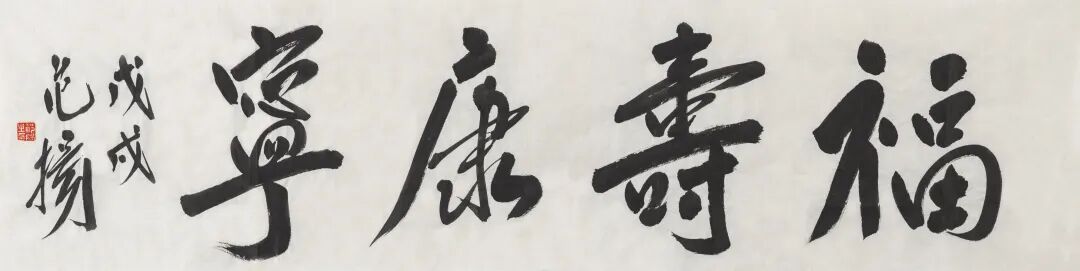 福壽康寧
戊戌
范揚